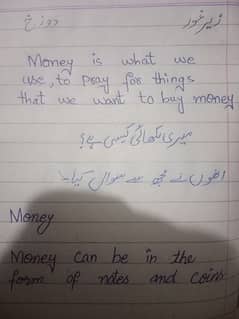 زیر غور دوزخ
Money is what we
use, to pray for things
that we want to buy money
میری لکھائی کیسی ہے؟
انھوں نے مجھ سے سوال کیا۔
Money
Money can be in the
form of notes and coins